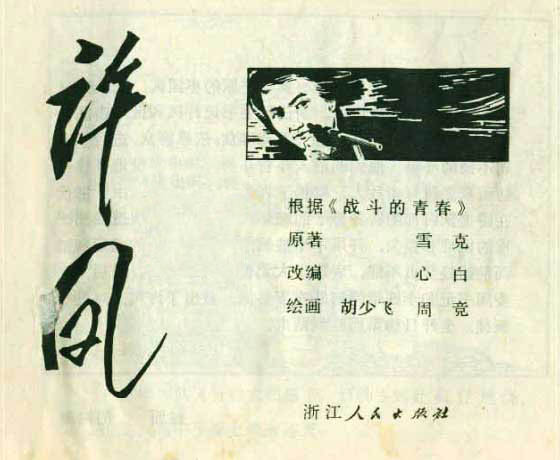 许凤
根据《战斗的青春》
原著 雪克
改编 心白
绘画 胡少飞 周竞
浙江人民出版社